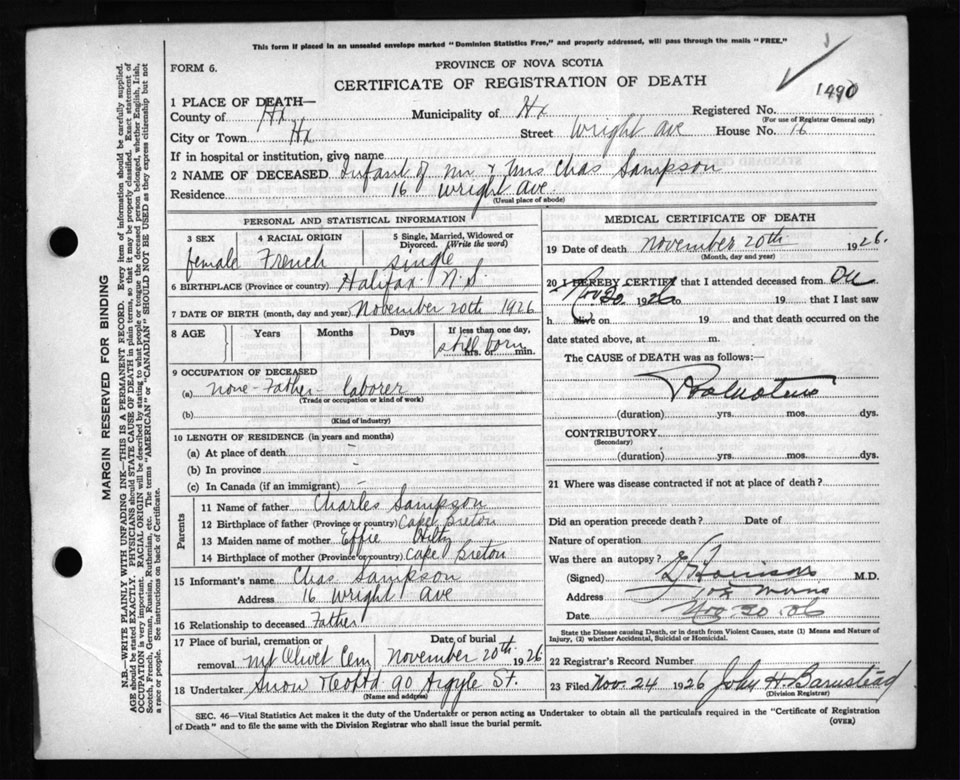 This form if placed in an unsealed envelope marked "Dominion Statistics Free," and properly addressed, will pass through the mails "FREE."
FORM 6.
PROVINCE OF NOVA SCOTIA
CERTIFICATE OF REGISTRATION OF DEATH
1490
1 PLACE OF DEATH—
County of Hx Municipality of Hx Registered No.
(For use of Registrar General only)
City or Town Hx Street Wright Ave House No. 16
If in hospital or institution, give name
2 NAME OF DECEASED Infant of Mr & Mrs Chas Sampson
Residence 16 Wright Ave.
(Usual place of abode)
PERSONAL AND STATISTICAL INFORMATION
3 SEX 4 RACIAL ORIGIN 5 Single, Married, Widowed or Divorced. (Write the word)
female French single
6 BIRTHPLACE (Province or country) Halifax N.S
7 DATE OF BIRTH (month, day and year) November 20th 1926
8 AGE Years Months Days If less than one day,
still born hrs. or min.
9 OCCUPATION OF DECEASED
(a) none - Father - laborer
(Trade or occupation or kind of work)
(b)
(Kind of industry)
10 LENGTH OF RESIDENCE (in years and months)
(a) At place of death -
(b) In province -
(c) In Canada (if an immigrant) -
Parents
11 Name of father Charles Sampson
12 Birthplace of father (Province or country) Cape Breton
13 Maiden name of mother Effie Hilty
14 Birthplace of mother (Province or country) Cape Breton
15 Informant's name Chas Sampson
Address 16 Wright Ave
16 Relationship to deceased Father
17 Place of burial, cremation or Date of burial
removal Mt Olivet Cem November 20th 1926
18 Undertaker Snow & Co Ltd 90 Argyle St.
(Name and address)
MEDICAL CERTIFICATE OF DEATH
19 Date of death November 20th 1926.
(Month, day and year)
20 I HEREBY CERTIFY that I attended deceased from On
Nov 20 1926 to 19 that I last saw
h alive on 19 and that death occurred on
date stated above, at m.
The CAUSE OF DEATH was as follows:
(duration) yrs. mos. dys.
CONTRIBUTORY
(Secondary)
(duration) yrs. mos. dys.
21 Where was disease contracted if not at place of death?
Did an operation precede death? Date of
Nature of operation
Was there an autopsy?
(Signed) M.D.
Address
Date Nov 20 26
State the Disease causing Death, or in death from Violent Causes, state (1) Means and Nature of
Injury, (2) whether Accidental, Suicidal or Homicidal.
22 Registrar's Record Number
23 Filed Nov. 24 1926 John H. Barnstead
(Division Registrar)
SEC. 46—Vital Statistics Act makes it the duty of the Undertaker or person acting as Undertaker to obtain all the particulars required in the "Certificate of Registration
of Death" and to file the same with the Division Registrar who shall issue the burial permit.
(OVER)
MARGIN RESERVED FOR BINDING
N.B.—WRITE PLAINLY WITH UNFADING INK—THIS IS A PERMANENT RECORD. Every item of information should be carefully supplied.
AGE should be stated EXACTLY. PHYSICIANS should STATE CAUSE OF DEATH in plain terms, so that it may be properly classified. Exact statement of
OCCUPATION is very important. RACIAL ORIGIN will be described by stating to what people or tongue the deceased person belonged, whether English, Irish,
Scotch, French, German, Russian, Ruthenian, etc. The terms "AMERICAN" or "CANADIAN" SHOULD NOT BE USED as they express citizenship but not
a race or people. See instructions on back of Certificate.